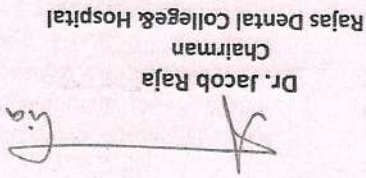 Dr. Jacob Raja
Chairman
Rajas Dental College& Hospital